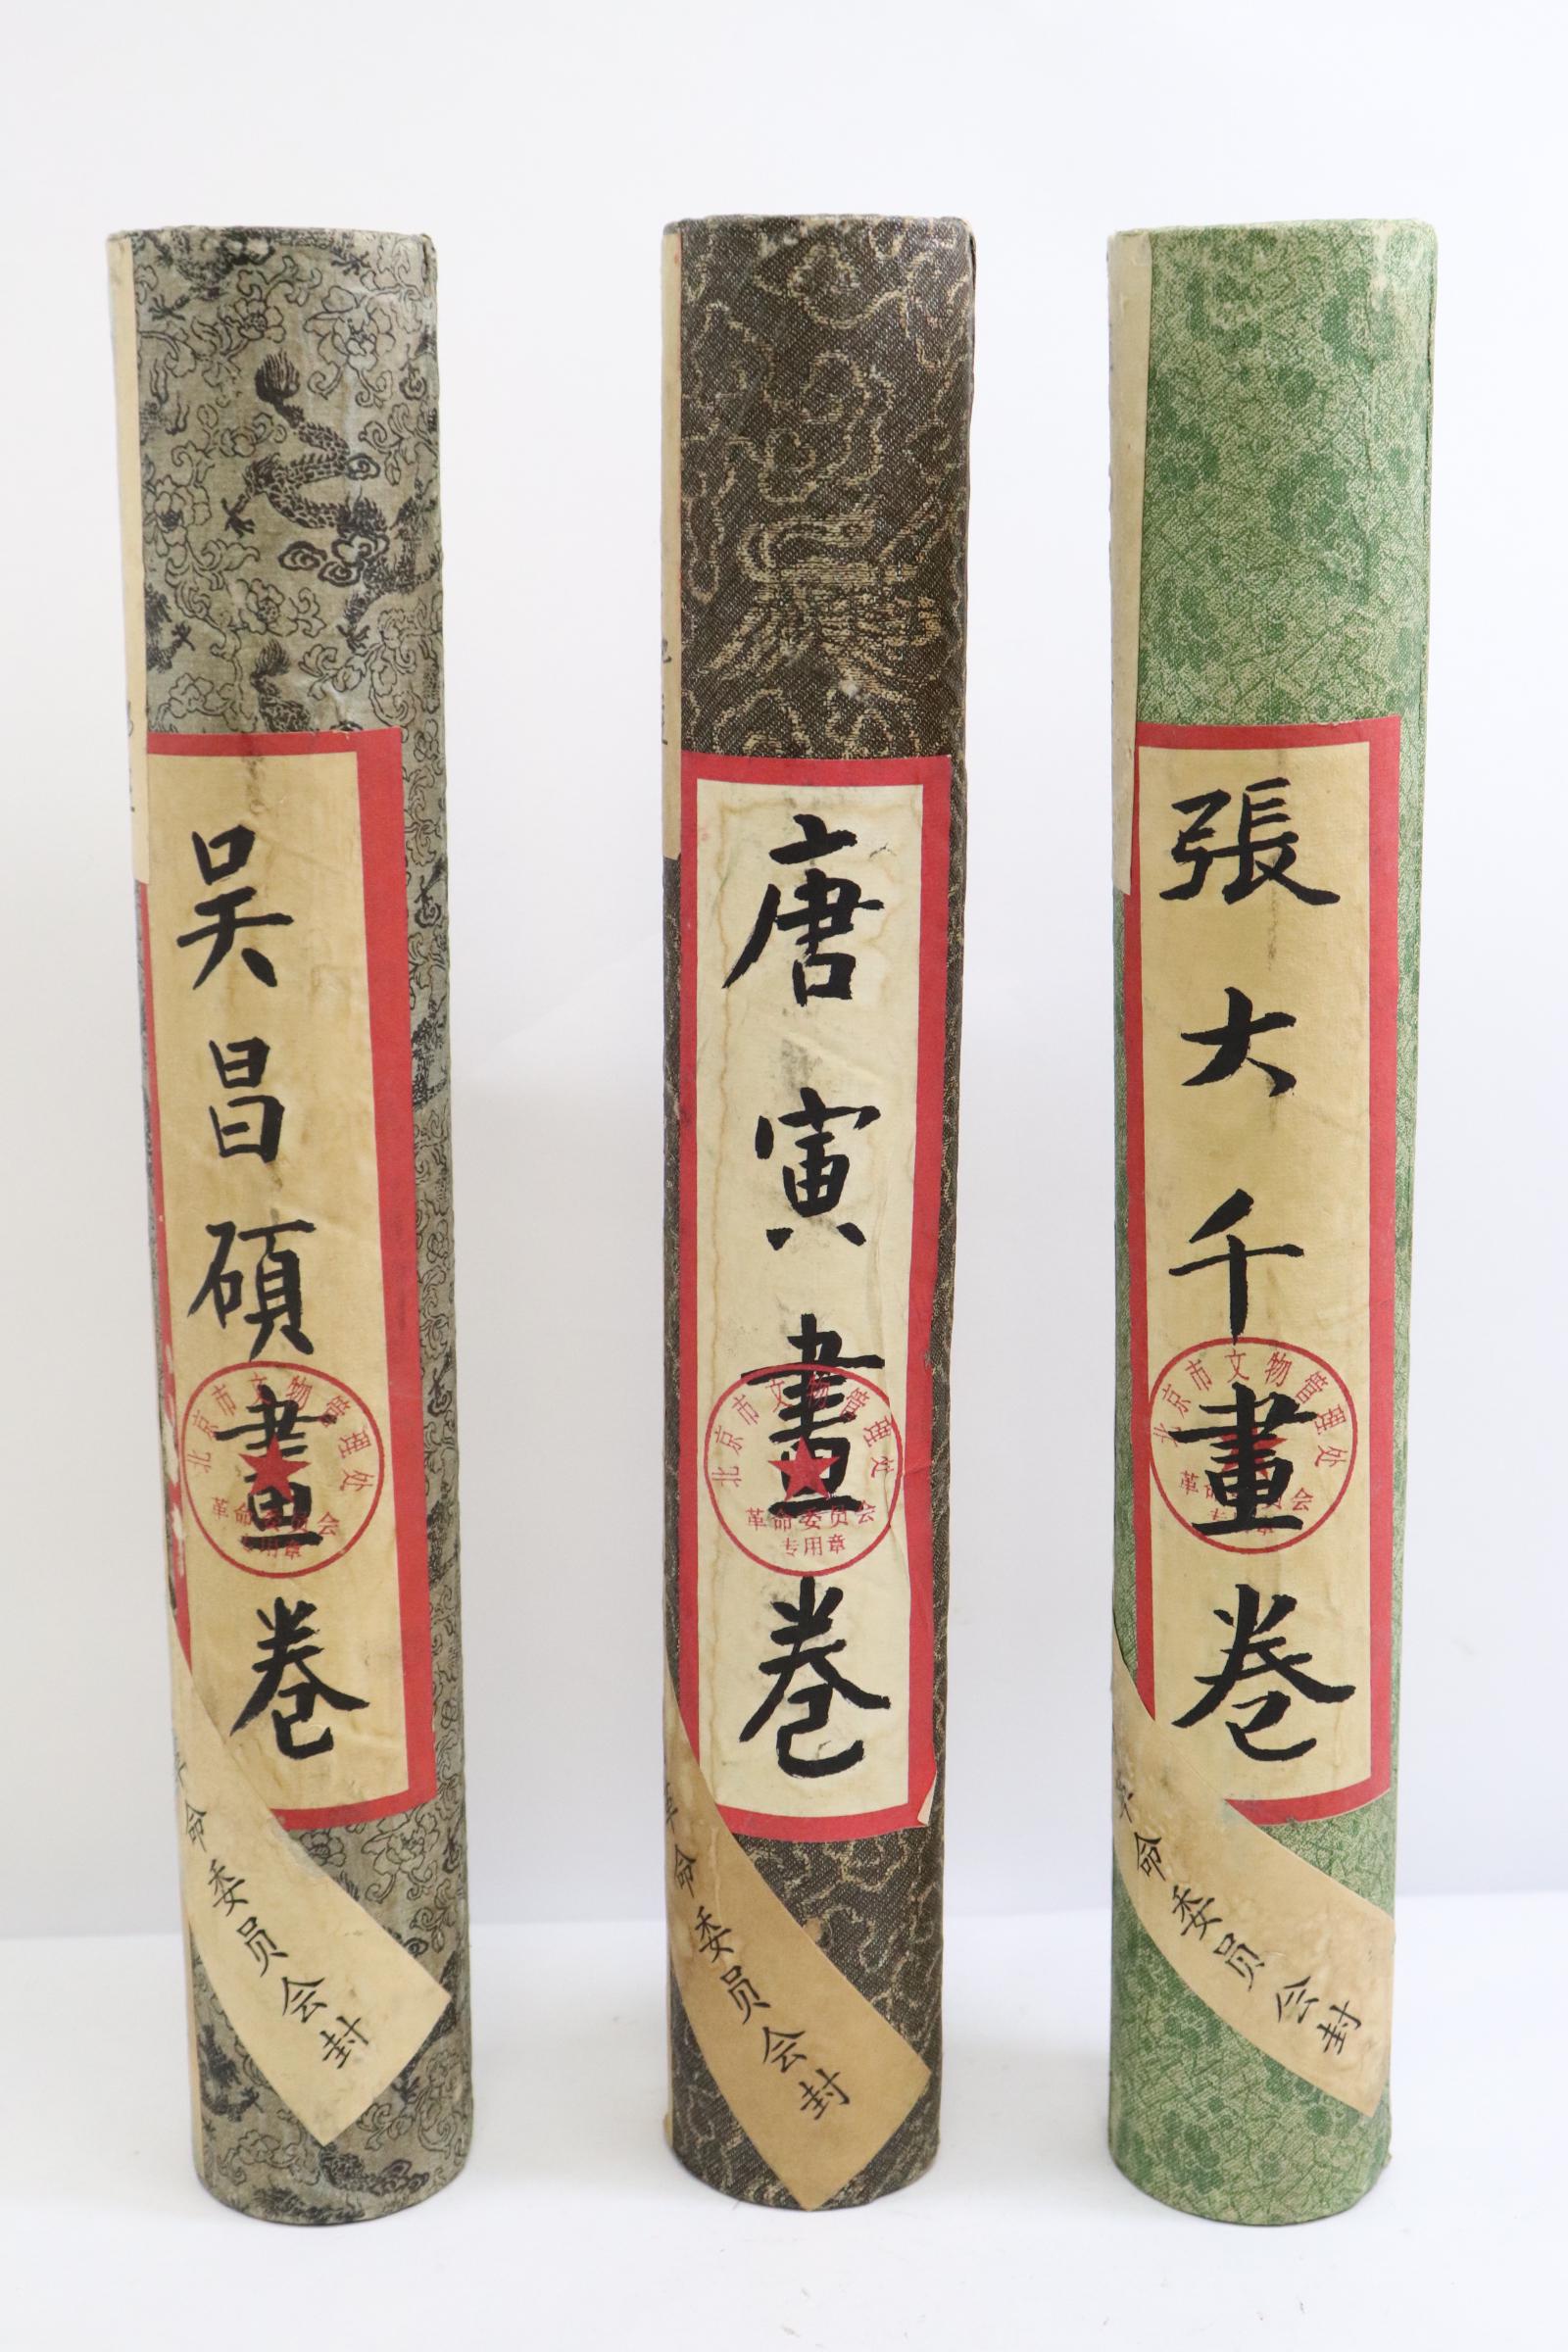 吴昌碩畫卷
北京市文物管理处
革命委员会
专用章
命委员会封
唐寅畫卷
北京市文物管理处
革命委员会
专用章
命委员会封
張大千畫卷
北京市文物管理处
革命委员会
命委员会封